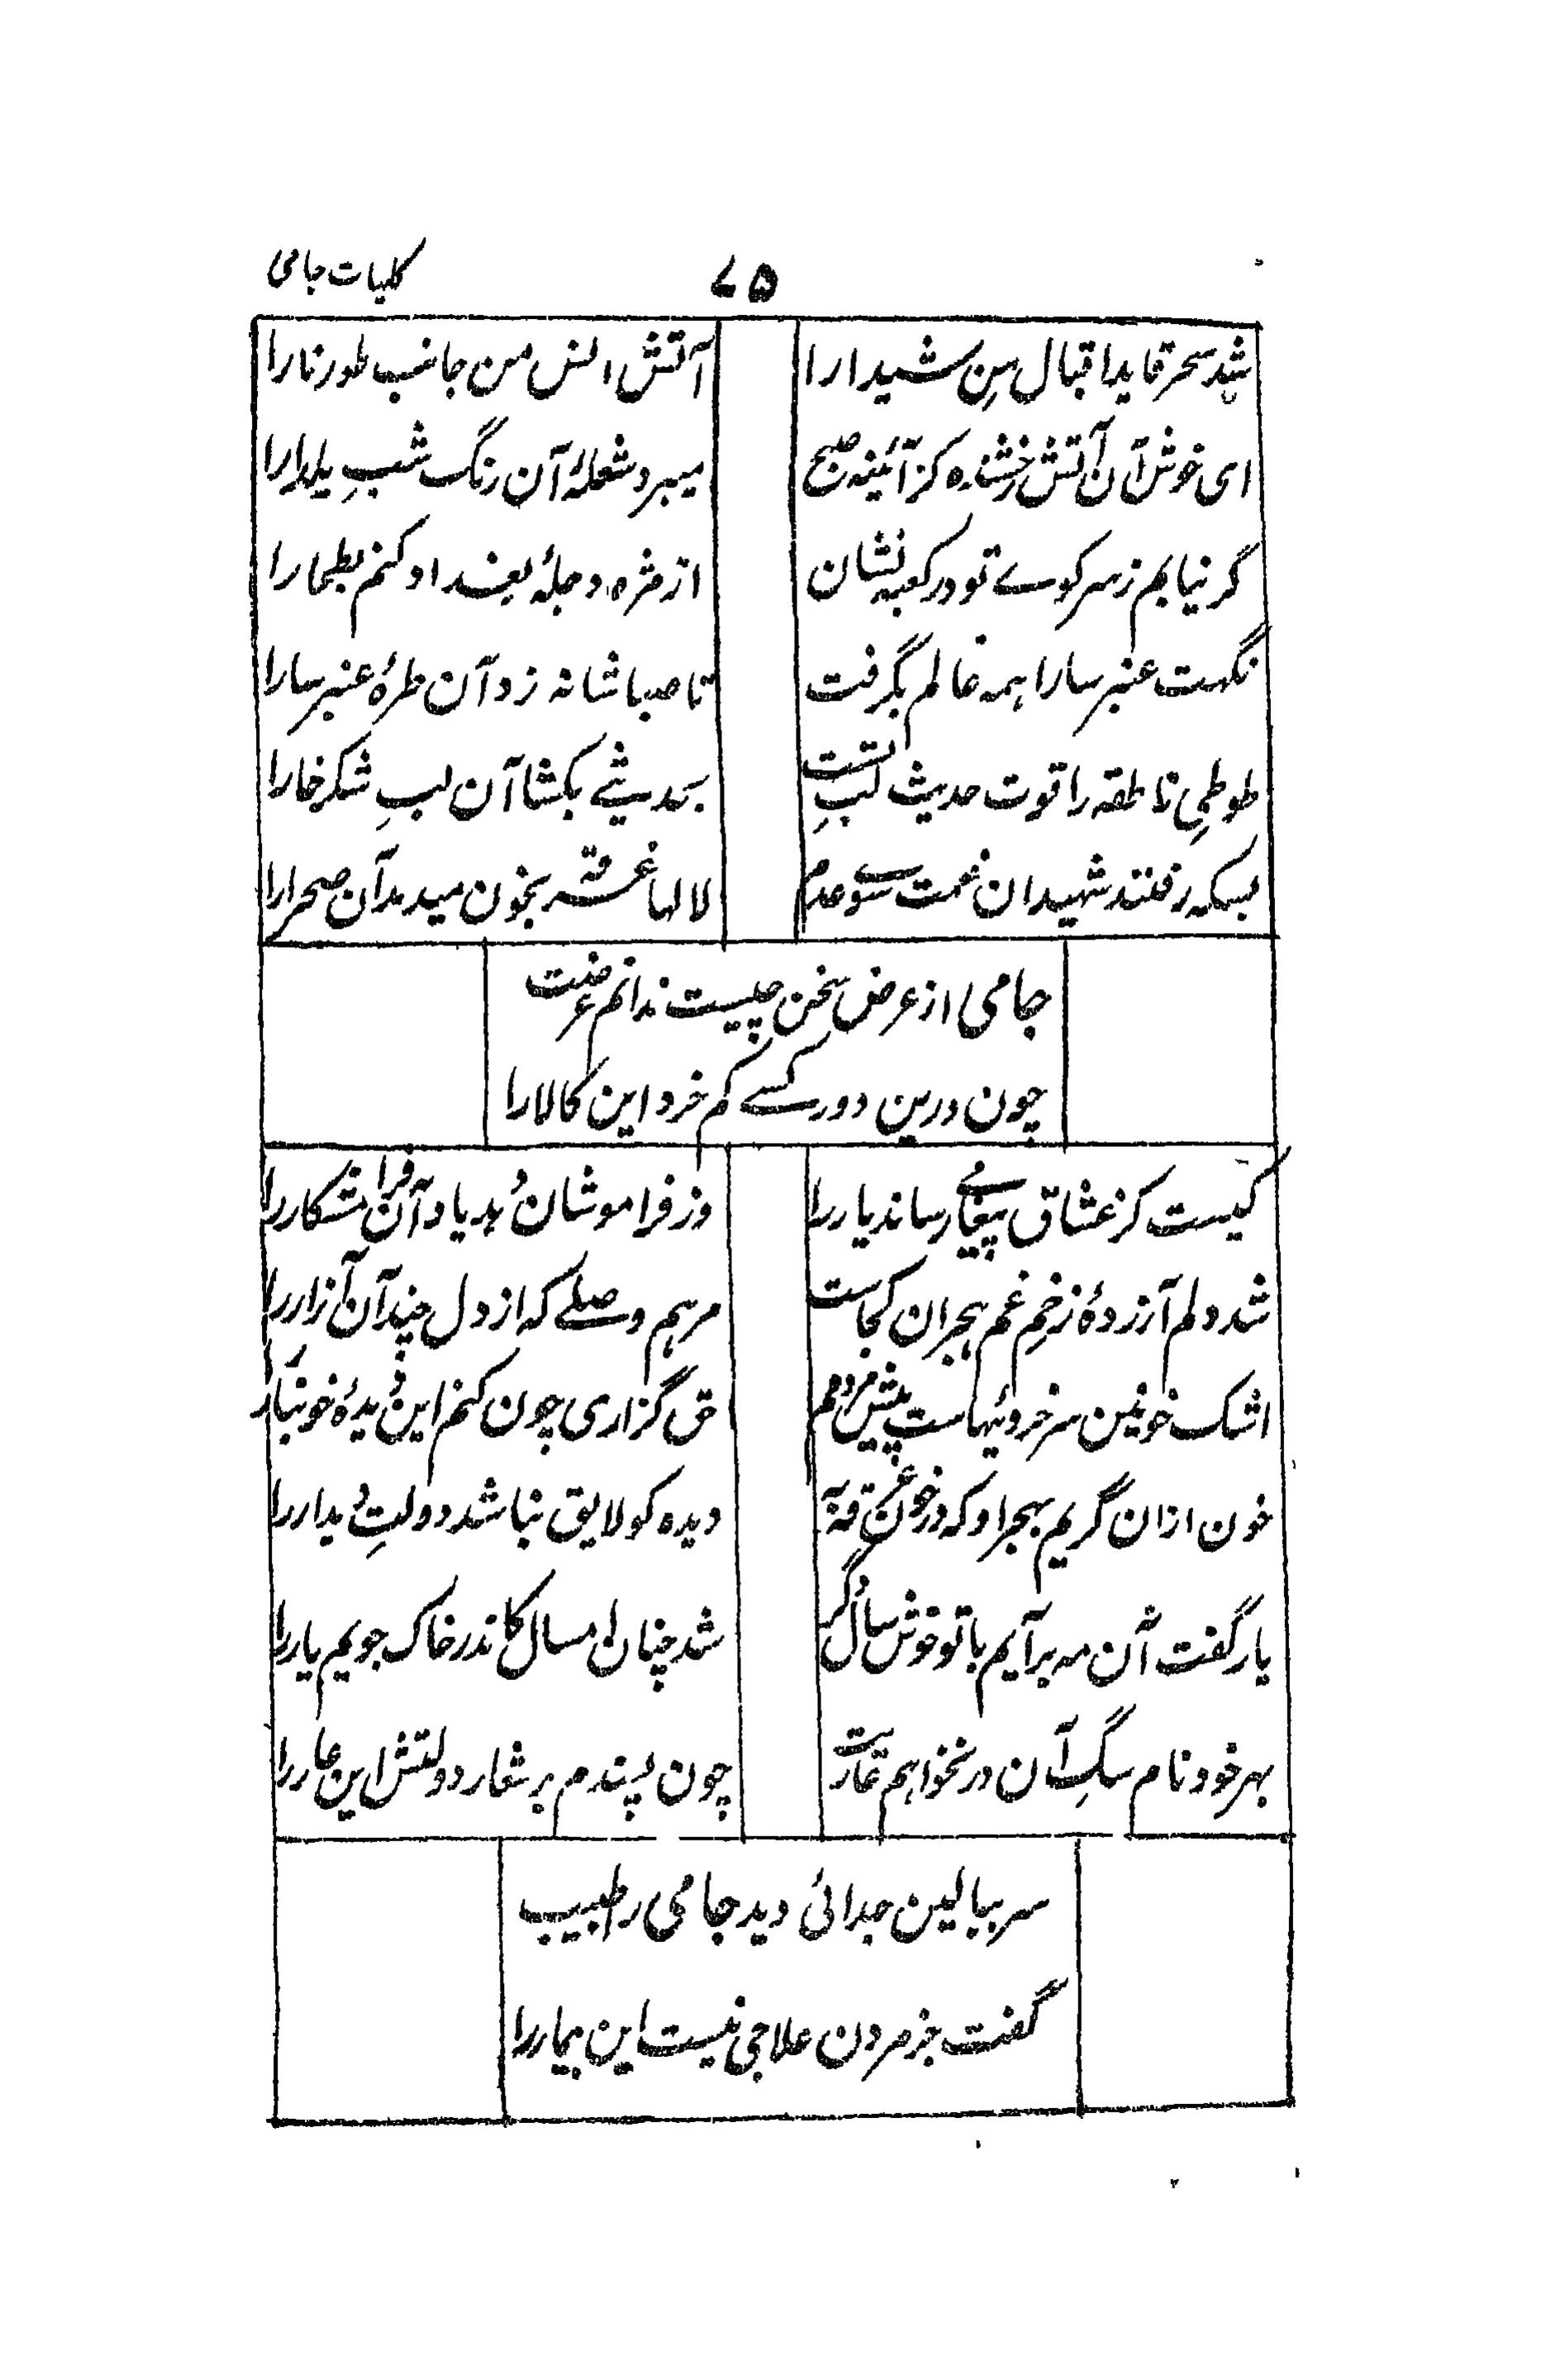 کلیات جامی
۷۵
شد سحر قاید اقبال من شیدا را
آتش انس من جانب طور نارا
ای خوش آن آتش رخشنده کز آئینه صبح
میبرد شعلهٔ آن زنگ شبِ یلدا را
گر نیابم ز سر کوے تو در کعبه نشان
از مژه دجلهٔ بغداد کنم بطحا را
نکهت عنبر سارا همه عالم بگرفت
تا صبا شانه زد آن طرهٔ عنبر سارا
طوطیِ ناطقه را قوت حدیث لبِ تست
بحدیثے بکشا آن لبِ شکرخا را
بسکه رفتند شهیدان غمت سوے عدم
لالها غرقه بخون میدمد آن صحرا را
جامی از عرض سخن چیست ندانم غرضت
چون درین دور کسے کم خرد این کالا را
کیست کز عشاق پیغامے رساند یار را
وز فراموشان دهد یاد آن فرامشکار را
شد دلم آزردهٔ زخمِ غم هجران کجاست
مرهم وصلے که از دل چیند آن آزار را
اشک خونین سرخروئیهاست پیش مردمم
حق گزاری چون کنم این دیدهٔ خونبار را
خون ازان گریم بهجر او که در خون غرقه به
دیده کو لایق نباشد دولتِ دیدار را
یار گفت آن مه برآیم با تو خوش سال دگر
شد چنان امسال کاندر خاک جویم یار را
بهر خود نام سگِ آن در نخواهم عارست
چون پسندم بر شعار دولتش این عار را
سر ببالین جدائی دید جامی را طبیب
گفت جز مردن علاجی نیست این بیمار را